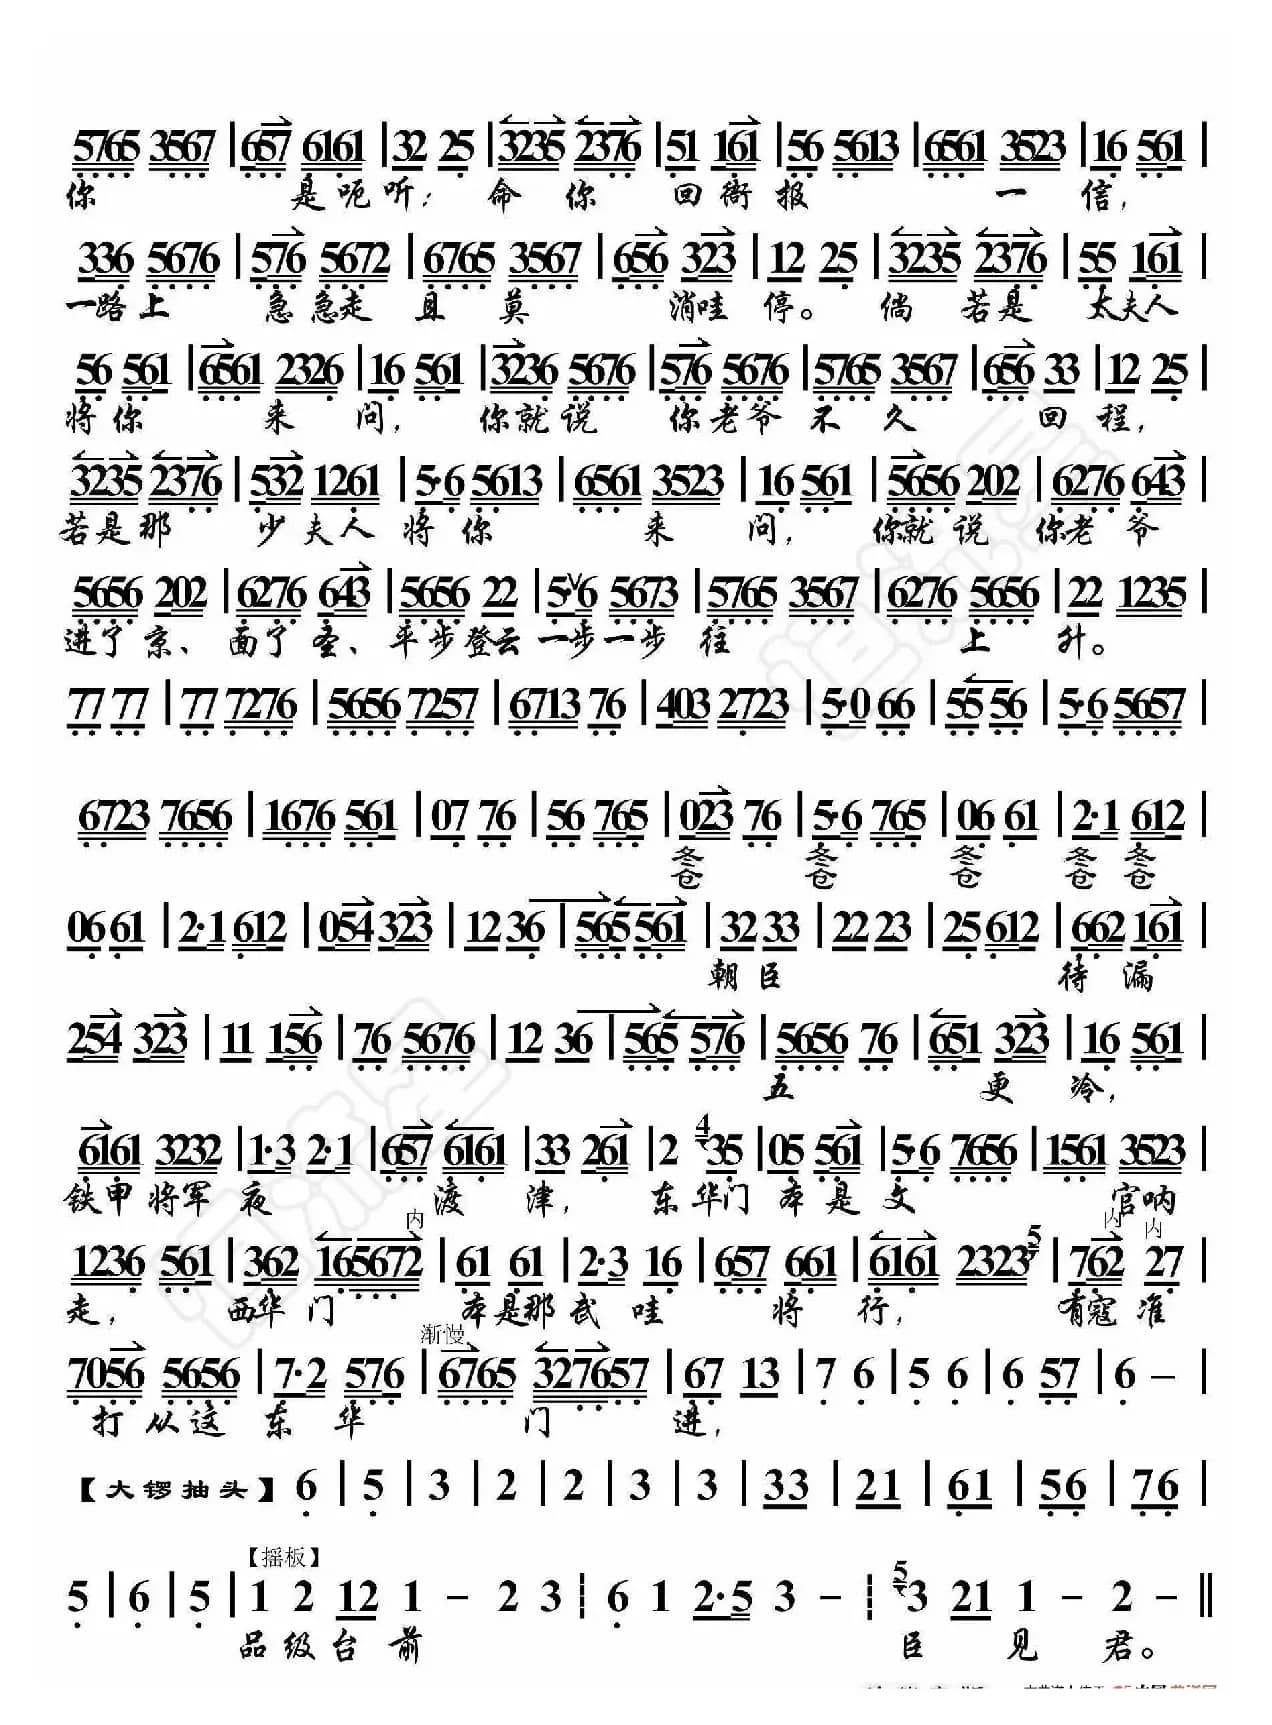 5765 3567 | 657 6161 | 32 25 | 3235 2376 | 51 161 | 56 5613 | 6561 3523 | 16 561 |
你 是呃听； 命 你 回衙报 一 信，
336 5676 | 576 5672 | 6765 3567 | 656 323 | 12 25 | 3235 2376 | 55 161 |
一路上 急急走 且 莫 消哇 停。 倘 若是 太夫人
56 561 | 6561 2326 | 16 561 | 3236 5676 | 576 5676 | 5765 3567 | 656 33 | 12 25 |
将你 来 问， 你就说 你老爷 不 久 回 程，
3235 2376 | 532 1261 | 5·6 5613 | 6561 3523 | 16 561 | 5656 202 | 6276 643 |
若是那 少夫人 将 你 来 问， 你就 说 你老 爷
5656 202 | 6276 643 | 5656 22 | 5·6 5673 | 5765 3567 | 6276 5656 | 22 1235 |
进了 京、 面了 圣、 平步登云 一步一步 往 上 升。
77 77 | 77 7276 | 5656 7257 | 6713 76 | 403 2723 | 5·0 66 | 55 56 | 5·6 5657 |
6723 7656 | 1676 561 | 07 76 | 56 765 | 023 76 | 5·6 765 | 06 61 | 2·1 612 |
冬 冬 冬 冬 冬
仓 仓 仓 仓 仓
06 61 | 2·1 612 | 054 323 | 12 36 | 565 561 | 32 33 | 22 23 | 25 612 | 662 161 |
朝 臣 待 漏
254 323 | 11 156 | 76 5676 | 12 36 | 565 576 | 5656 76 | 651 323 | 16 561 |
五 更 冷，
6161 3232 | 1·3 2·1 | 657 6161 | 33 261 | 2 4 35 | 05 561 | 5·6 7656 | 1561 3523 |
铁甲将军 夜 渡 津， 东 华门 本 是 文 官呐
内 5 内 内
1236 561 | 362 165672 | 61 61 | 2·3 16 | 657 661 | 6161 2323 | 762 27 |
走， 西华 门 本是那 武 哇 将 行， 有寇 准
渐慢
7056 5656 | 7·2 576 | 6765 327657 | 67 13 | 7 6 | 5 6 | 6 57 | 6 – |
打 从这 东 华 门 进，
【大锣抽头】 6 | 5 | 3 | 2 | 2 | 3 | 3 | 33 | 21 | 61 | 56 | 76 |
【摇板】
5 | 6 | 5 | 1 2 12 1 – 2 3 ¦ 6 1 2·5 3 – ¦ 5 3 21 1 – 2 – ‖
品级台 前 臣 见 君。